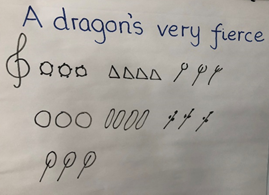 A dragon's very fierce